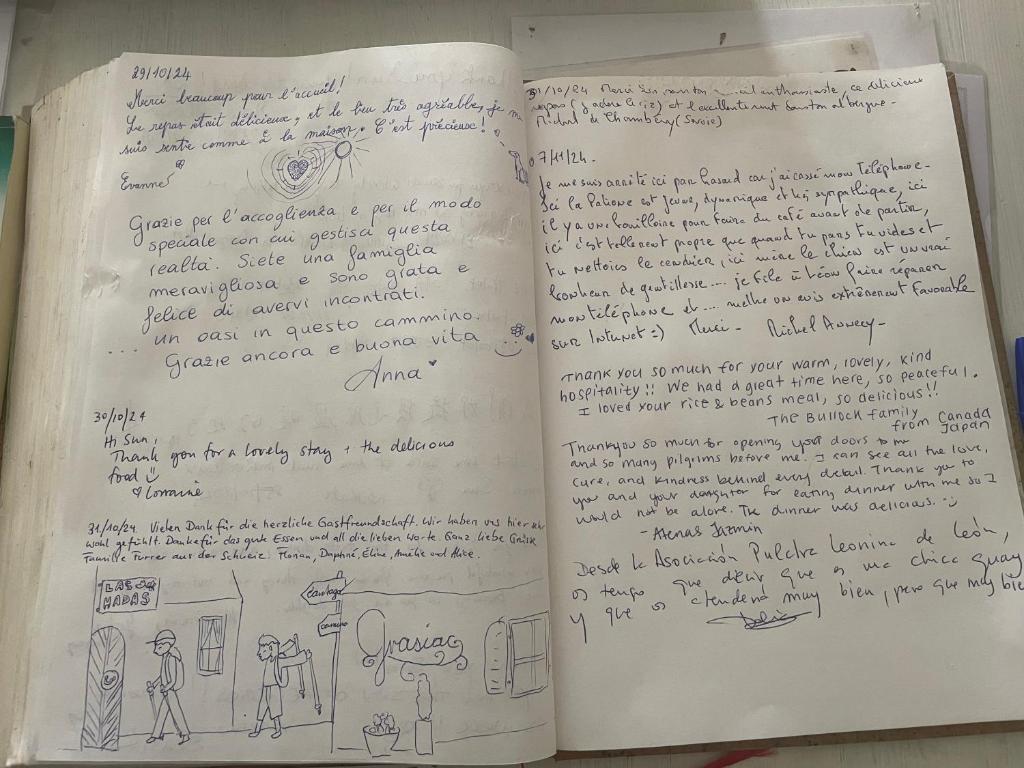 29/10/24
Merci beaucoup pour l'accueil!
Le repas était délicieux, et le lieu très agréable, je me
suis sentie comme à la maison. C'est précieux!
Evanne
Grazie per l'accoglienza e per il modo
speciale con cui gestisci questa
realtà. Siete una famiglia
meravigliosa e sono grata e
felice di avervi incontrati.
... un oasi in questo cammino.
Grazie ancora e buona vita
Anna
30/10/24
Hi Sun,
Thank you for a lovely stay + the delicious
food
Lorraine
31/10/24. Vielen Dank für die herzliche Gastfreundschaft. Wir haben uns hier sehr
wohl gefühlt. Danke für das gute Essen und all die lieben Worte. Ganz liebe Grüsse
Familie Furrer aus der Schweiz. Florian, Daphné, Eline, Amélie und Alice.
LAS
HADAS
Santiago
camino
Grasias
31/10/24 Merci enthousiaste, ce délicieux
repas (j'adore le riz) et l'excellentissime
de Chambéry (Savoie)
07/11/24.
Je me suis arrêté ici par hasard car j'ai cassé mon Téléphone-
Ici la Patrone est jeune, dynamique et très sympathique, ici
il y a une bouilloire pour faire du café avant de partir,
ici c'est tellement propre que quand tu pars tu vides et
tu nettoies le cendrier, ici même le chien est un vrai
bonheur de gentillesse.... je file à Léon faire réparer
mon téléphone et ... mettre un avis extrêmement favorable
sur Internet =) Merci - Michel Annecy-
Thank you so much for your warm, lovely, kind
hospitality!! We had a great time here, so peaceful.
I loved your rice & beans meal, so delicious!!
The Bullock family
from Canada
Japan
Thankyou so much for opening your doors to me
and so many pilgrims before me. I can see all the love,
care, and kindness behind every detail. Thank you to
you and your daughter for eating dinner with me so I
would not be alone. The dinner was delicious.
- Arenas Jazmin
Desde la Asociación Pulchra Leonina de León,
os tengo que decir que es una chica guay
y que os atenderá muy bien, pero que muy bien